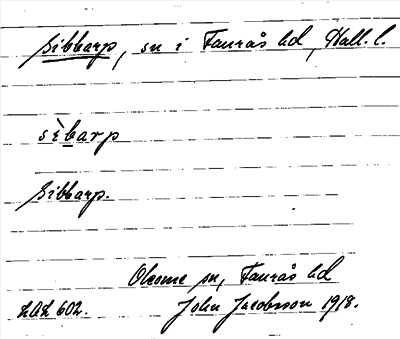 Sibbarp, sn i Faurås hd, Hall. l.
sèbarp
Sibbarp.
Okome sn, Faurås hd
LAL 602. John Jacobsson 1918.